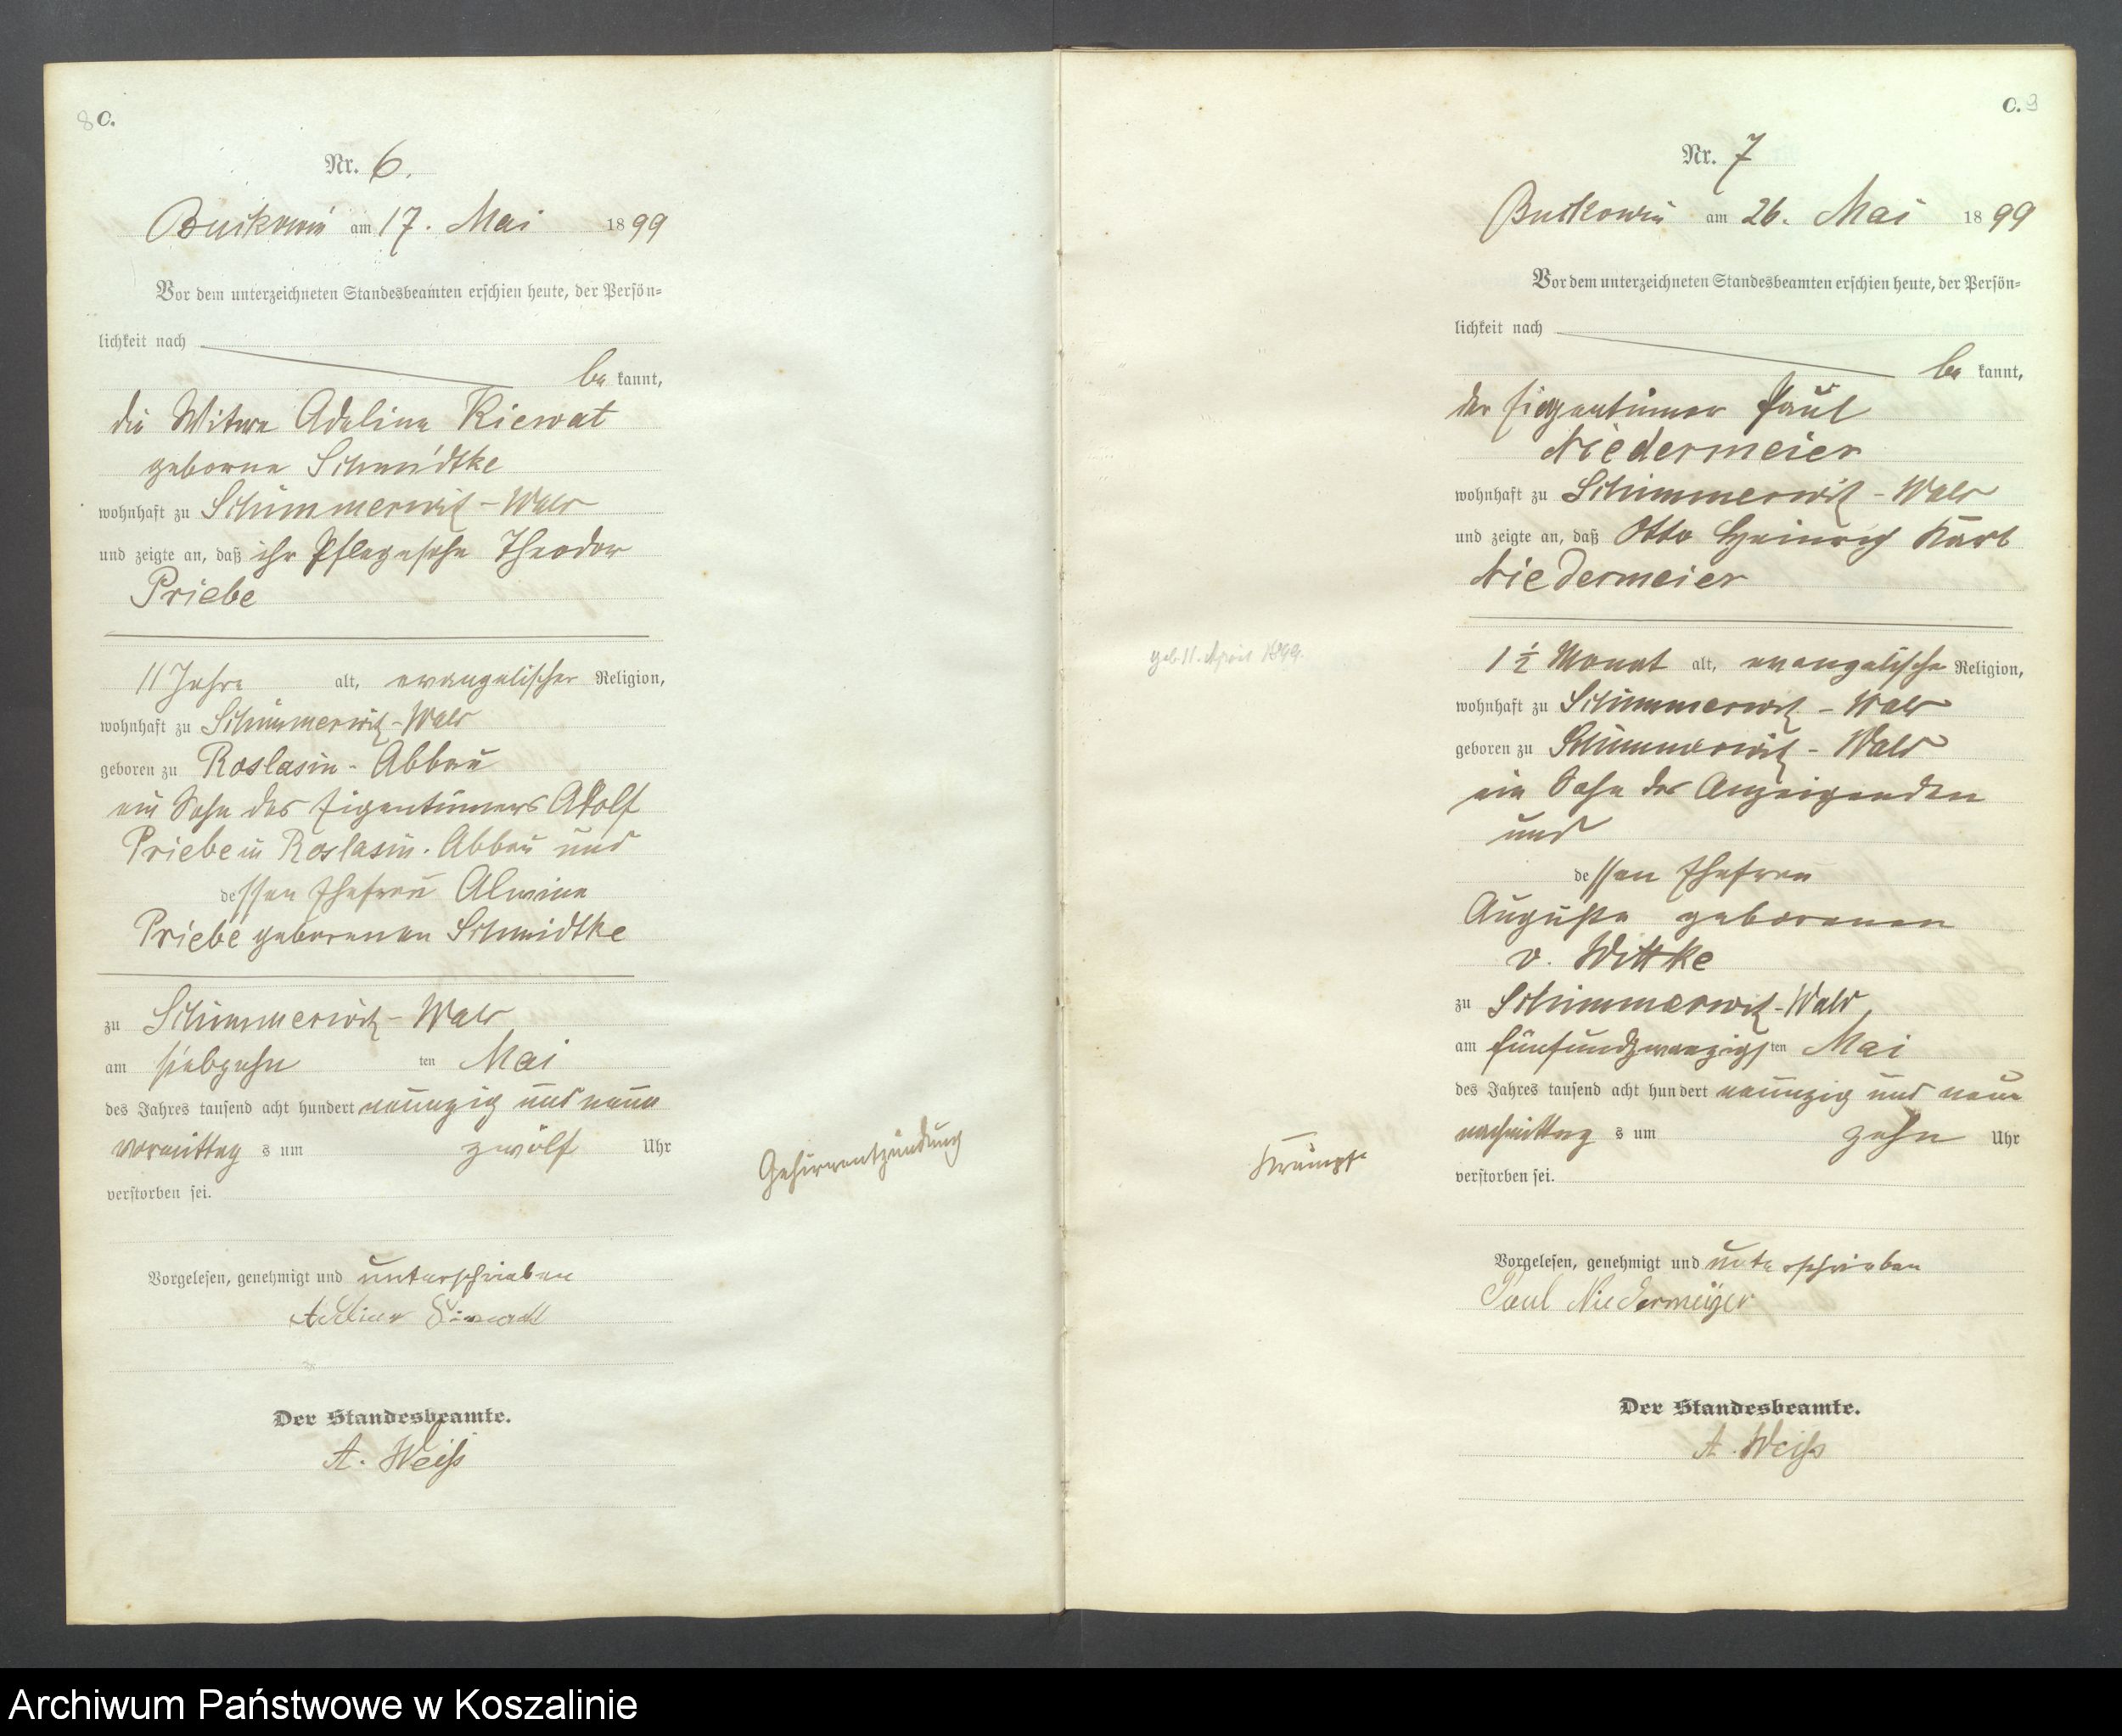 8 C.
Nr. 6.
Buckowin am 17. Mai 1899
Vor dem unterzeichneten Standesbeamten erschien heute, der Persön-
lichkeit nach
bekannt,
die Witwe Adeline Kiewat
geborne Schmidtke
wohnhaft zu Schimmerwitz-Wald
und zeigte an, daß ihr Pflegesohn Theodor
Priebe
11 Jahre alt, evangelischer Religion,
wohnhaft zu Schimmerwitz-Wald
geboren zu Roslasin-Abbau
ein Sohn des Eigentümers Adolf
Priebe in Roslasin-Abbau und
dessen Ehefrau Alwine
Priebe geborenen Schmidtke
zu Schimmerwitz-Wald
am siebzehnten Mai
des Jahres tausend acht hundert neunzig und neun
vormittags um zwölf Uhr
verstorben sei.
Gehirnentzündung
Vorgelesen, genehmigt und unterschrieben
Der Standesbeamte.
A. Weiß
C. 9
Nr. 7
Buckowin am 26. Mai 1899
Vor dem unterzeichneten Standesbeamten erschien heute, der Persön-
lichkeit nach
bekannt,
der Eigentümer Paul
Niedermeier
wohnhaft zu Schimmerwitz-Wald
und zeigte an, daß Otto Heinrich Karl
Niedermeier
geb. 11. April 1899.
1 ½ Monat alt, evangelische Religion,
wohnhaft zu Schimmerwitz-Wald
geboren zu Schimmerwitz-Wald
ein Sohn des Anzeigenden
und
dessen Ehefrau
Auguste geborenen
v. Wittke
zu Schimmerwitz-Wald
am fünfundzwanzigsten Mai
des Jahres tausend acht hundert neunzig und neun
nachmittags um zehn Uhr
verstorben sei.
Krämpfe
Vorgelesen, genehmigt und unterschrieben
Paul Niedermeiyer
Der Standesbeamte.
A. Weiß
Archiwum Państwowe w Koszalinie